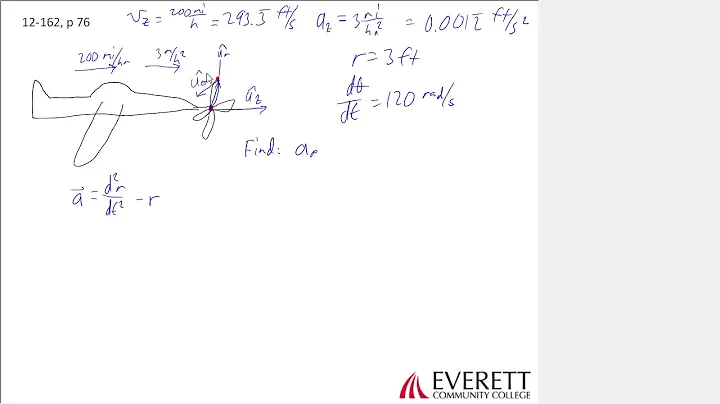 12-162, p 76
v_z = 200 mi/h = 293.3̅ ft/s a_z = 3 mi/h² = 0.0012̅ ft/s²
200 mi/hr 3 mi/h² û_r
r = 3 ft
û_θ û_z
dθ/dt = 120 rad/s
Find: a_P
a⃗ = d²r/dt² - r
EVERETT
COMMUNITY COLLEGE